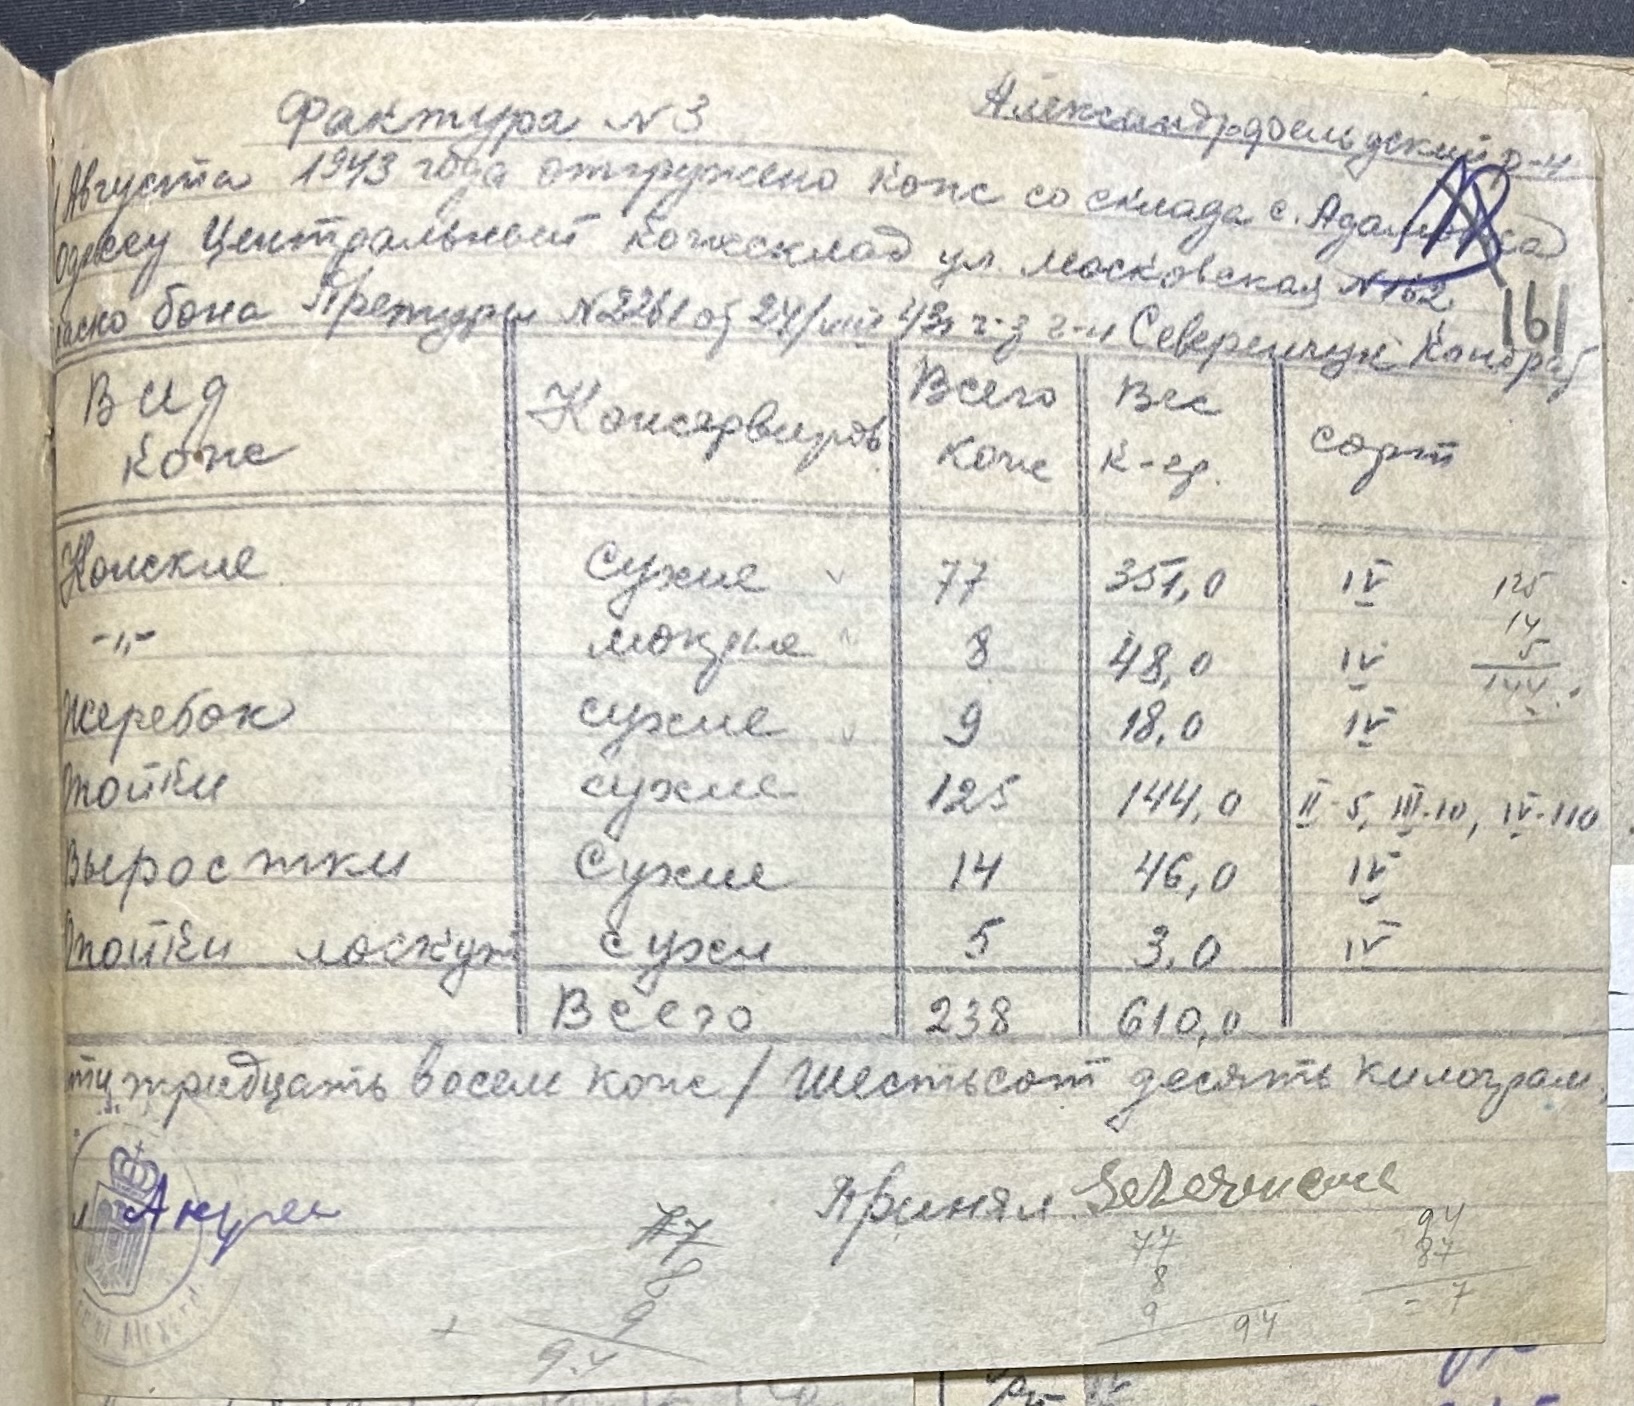 Фактура №3
Александрфельдский р-н
Августа 1943 года отгружено кож со склада с. Адамовка
Одессу Центральный Кожсклад ул. Московская №162
161
бона Претуры №2261 от 24/VIII 43г ч-з г-н Северенчук Кондрат
Вид кож Консервировь Всего кож Вес к-гр. сорт
Конские сухие 77 351,0 IV
-"- мокрые 8 48,0 IV
Жеребок сухие 9 18,0 IV
пойки сухие 125 144,0 II-5, III-10, IV-110
Выростки Сухие 14 46,0 IV
пойки лоскут сухи 5 3,0 IV
Всего 238 610,0
125
14
5
144
тридцать восем кож / Шестьсот десять килограм
Принял
77
8
9
94
+
77
8
9
94
94
87
- 7